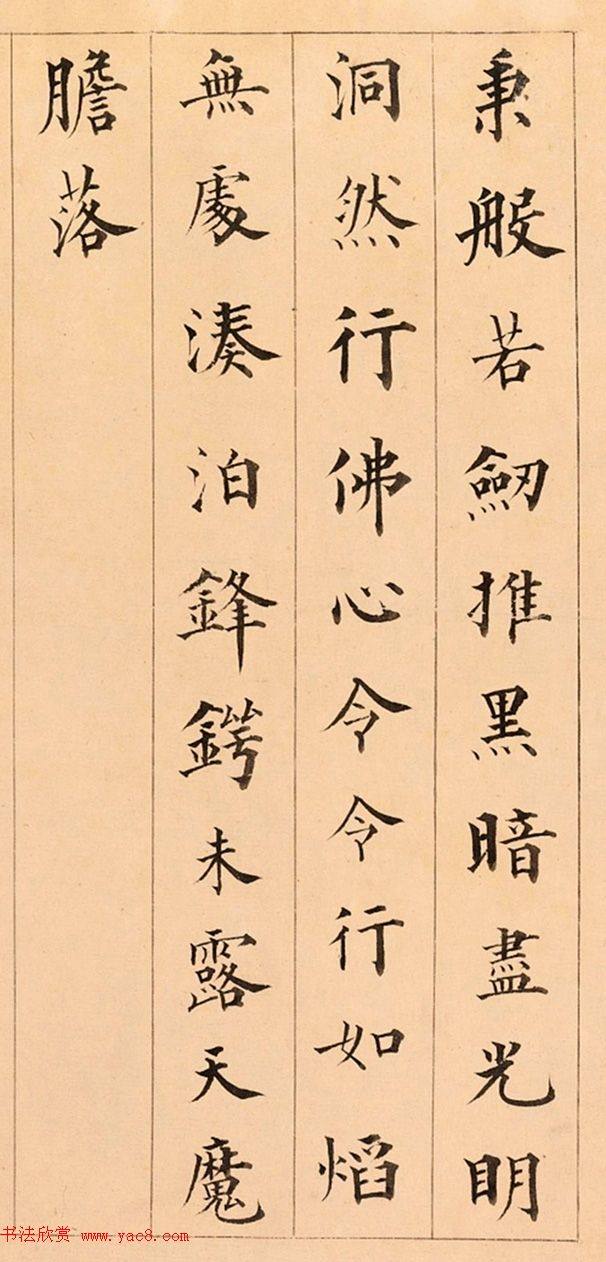 秉般若劒推黒暗盡光明
洞然行佛心令令行如熖
無處湊泊鋒鍔未露天魔
膽落
书法欣赏 www.yac8.com